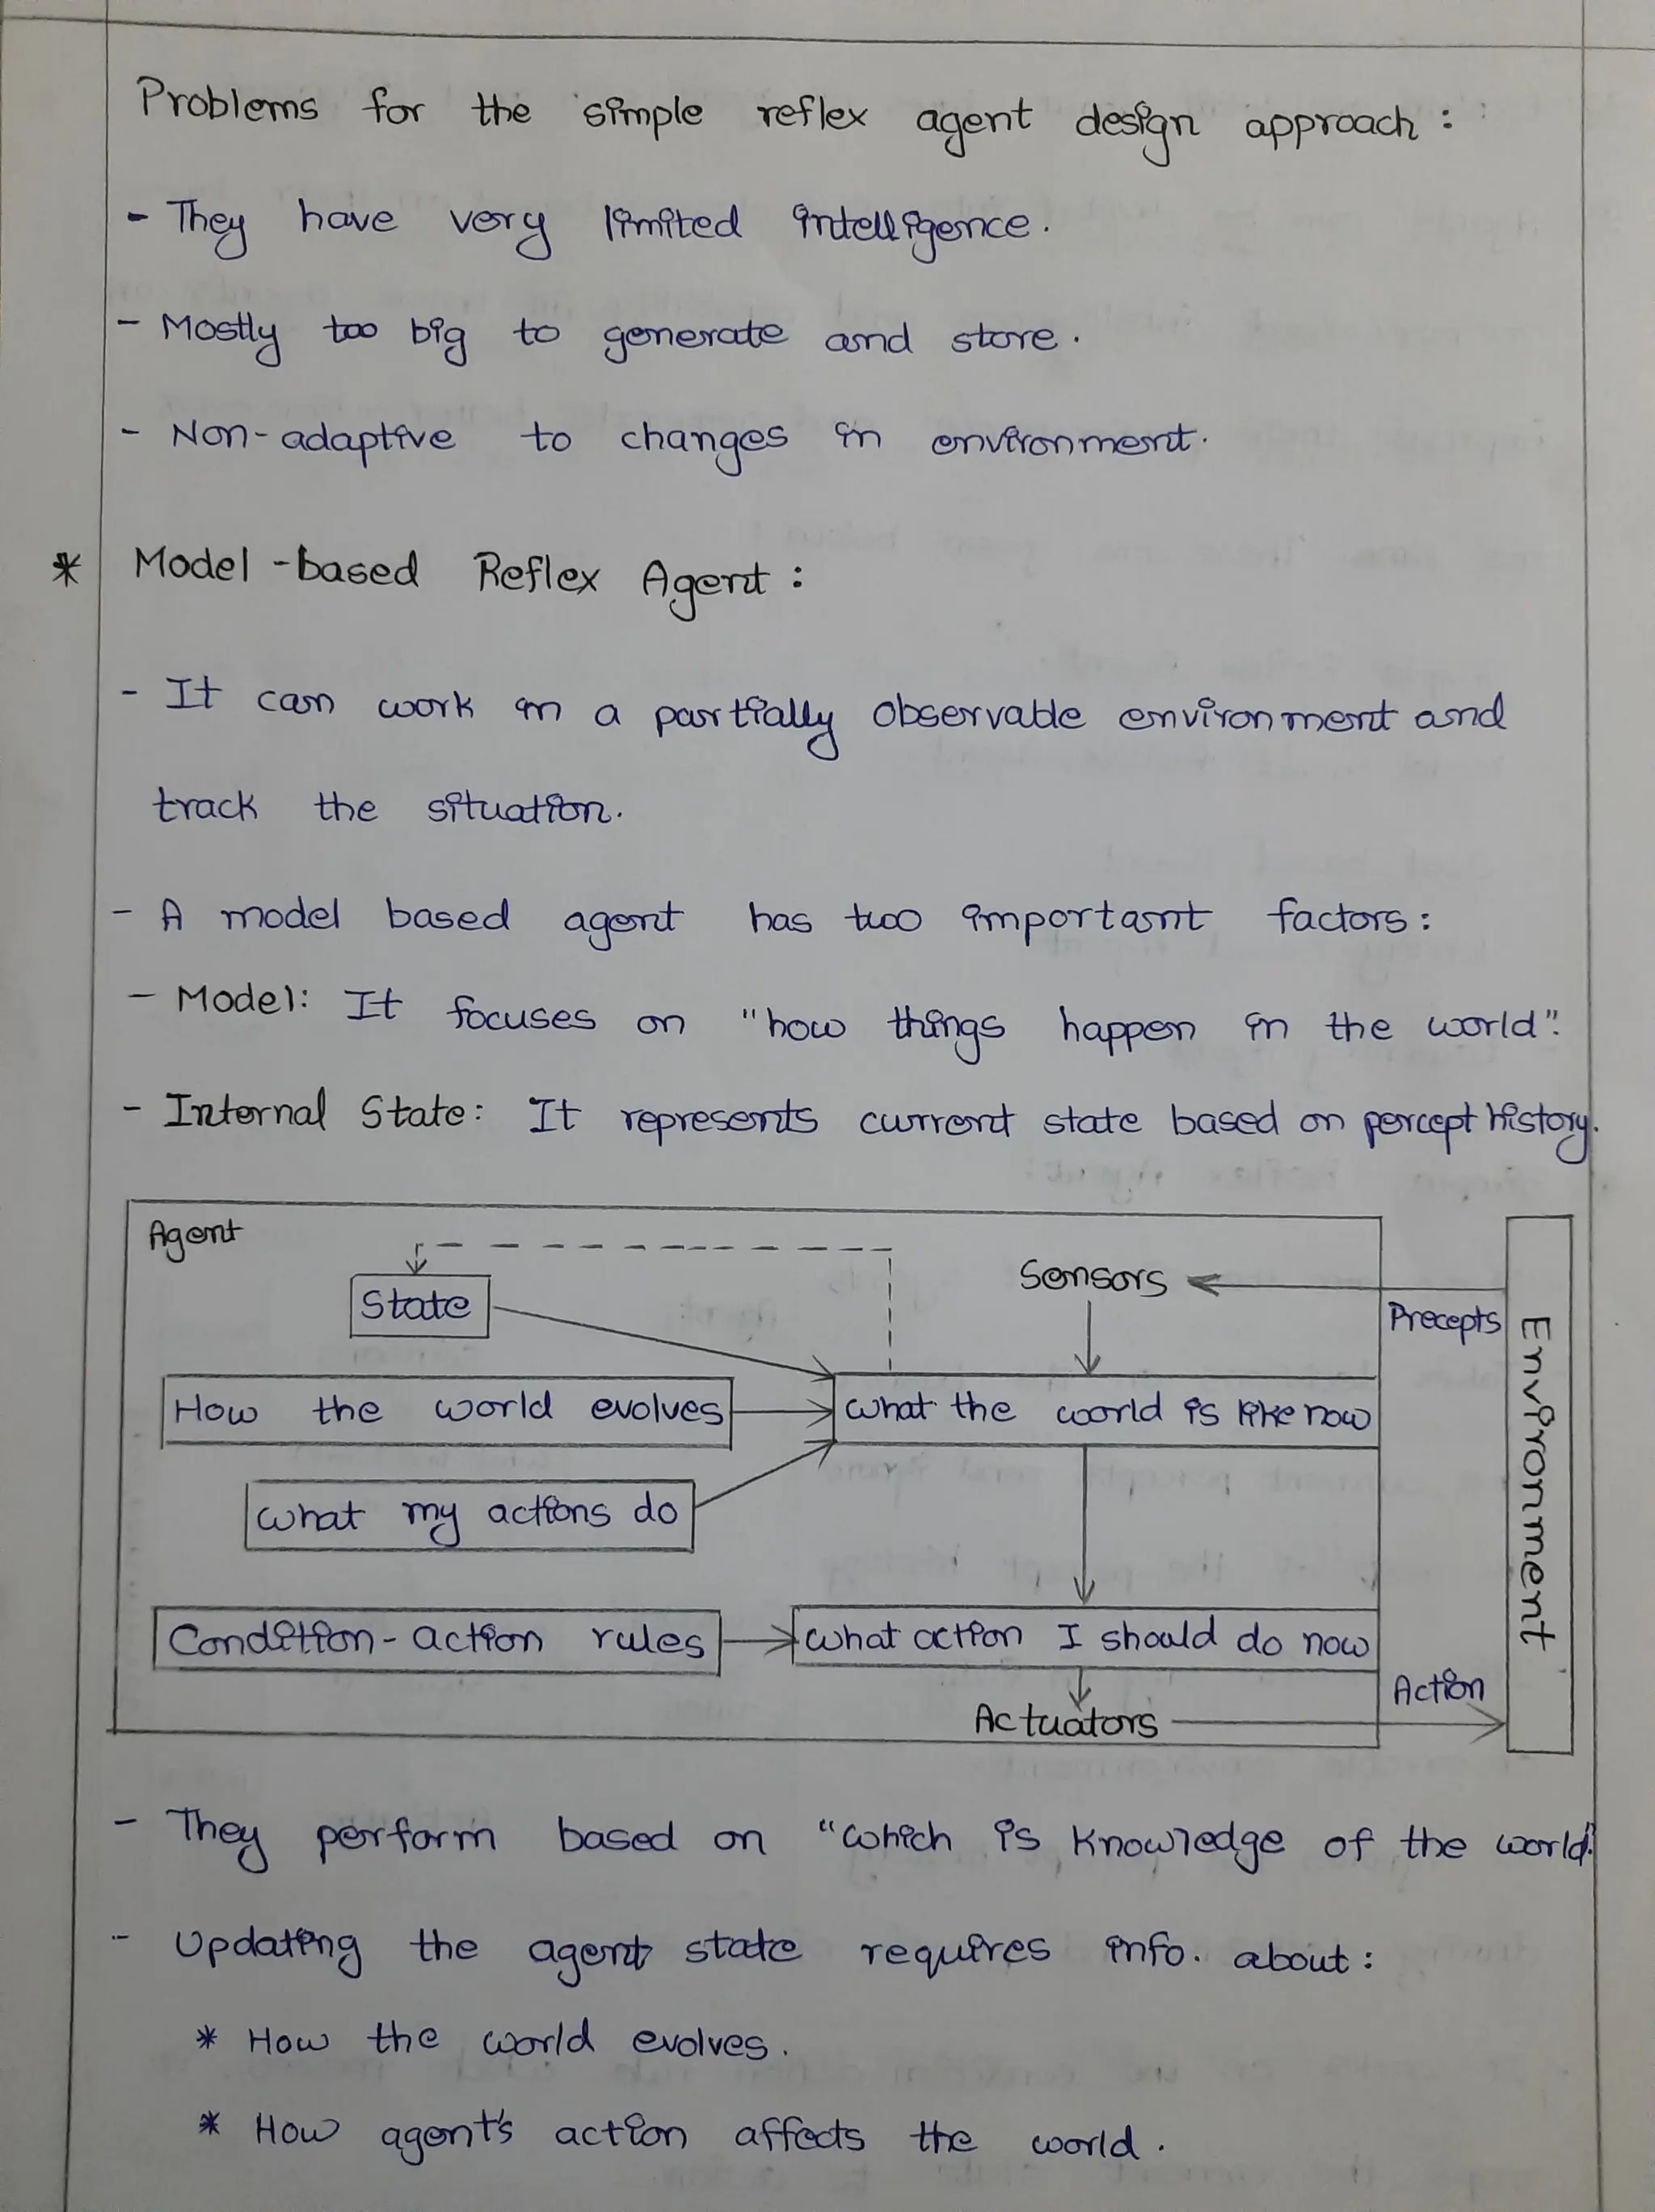 Problems for the simple reflex agent design approach :
- They have very limited intelligence.
- Mostly too big to generate and store.
- Non-adaptive to changes in environment.
* Model-based Reflex Agent :
- It can work in a partially observable environment and
track the situation.
- A model based agent has two important factors :
- Model: It focuses on "how things happen in the world".
- Internal State: It represents current state based on percept history.
Agent
Sensors
State
Precepts
How the world evolves
What the world is like now
What my actions do
Environment
Condition-action rules
What action I should do now
Action
Actuators
- They perform based on "which is knowledge of the world"
- Updating the agent state requires info. about :
* How the world evolves.
* How agent's action affects the world.